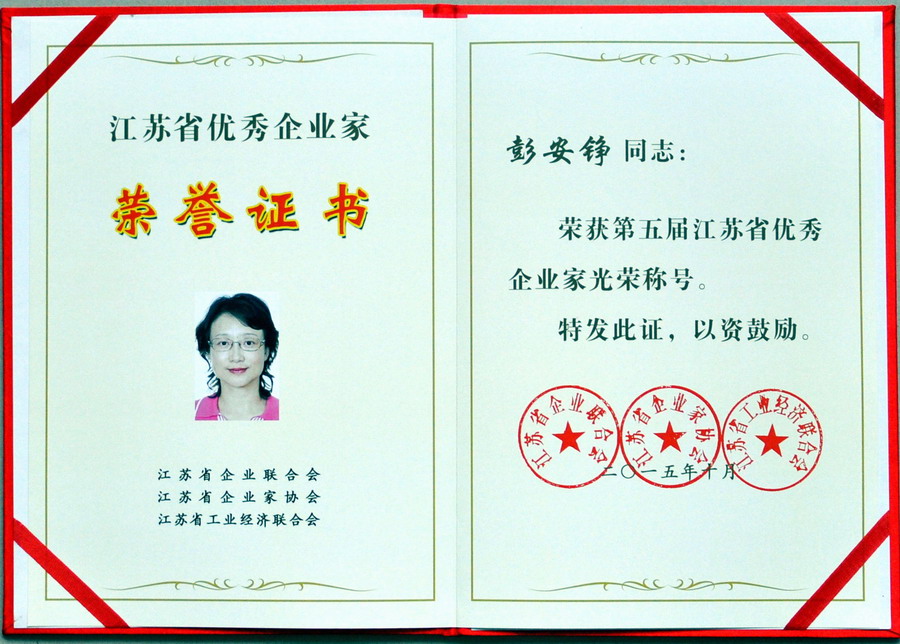 江苏省优秀企业家
荣誉证书
江苏省企业联合会
江苏省企业家协会
江苏省工业经济联合会
彭安铮 同志：
荣获第五届江苏省优秀
企业家光荣称号。
特发此证，以资鼓励。
江苏省企业联合会
江苏省企业家协会
江苏省工业经济联合会
二〇一五年十月